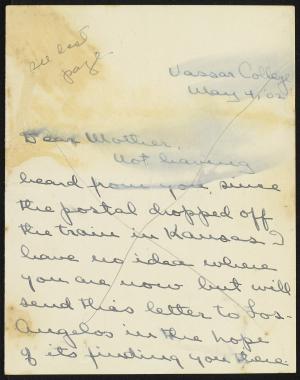 see last
page.
Vassar College
May 4, 02
Dear Mother,
Not having
heard from you, since
the postal dropped off
the train in Kansas, I
have no idea where
you are now but will
send this letter to Los-
Angelos in the hope
of its finding you there.